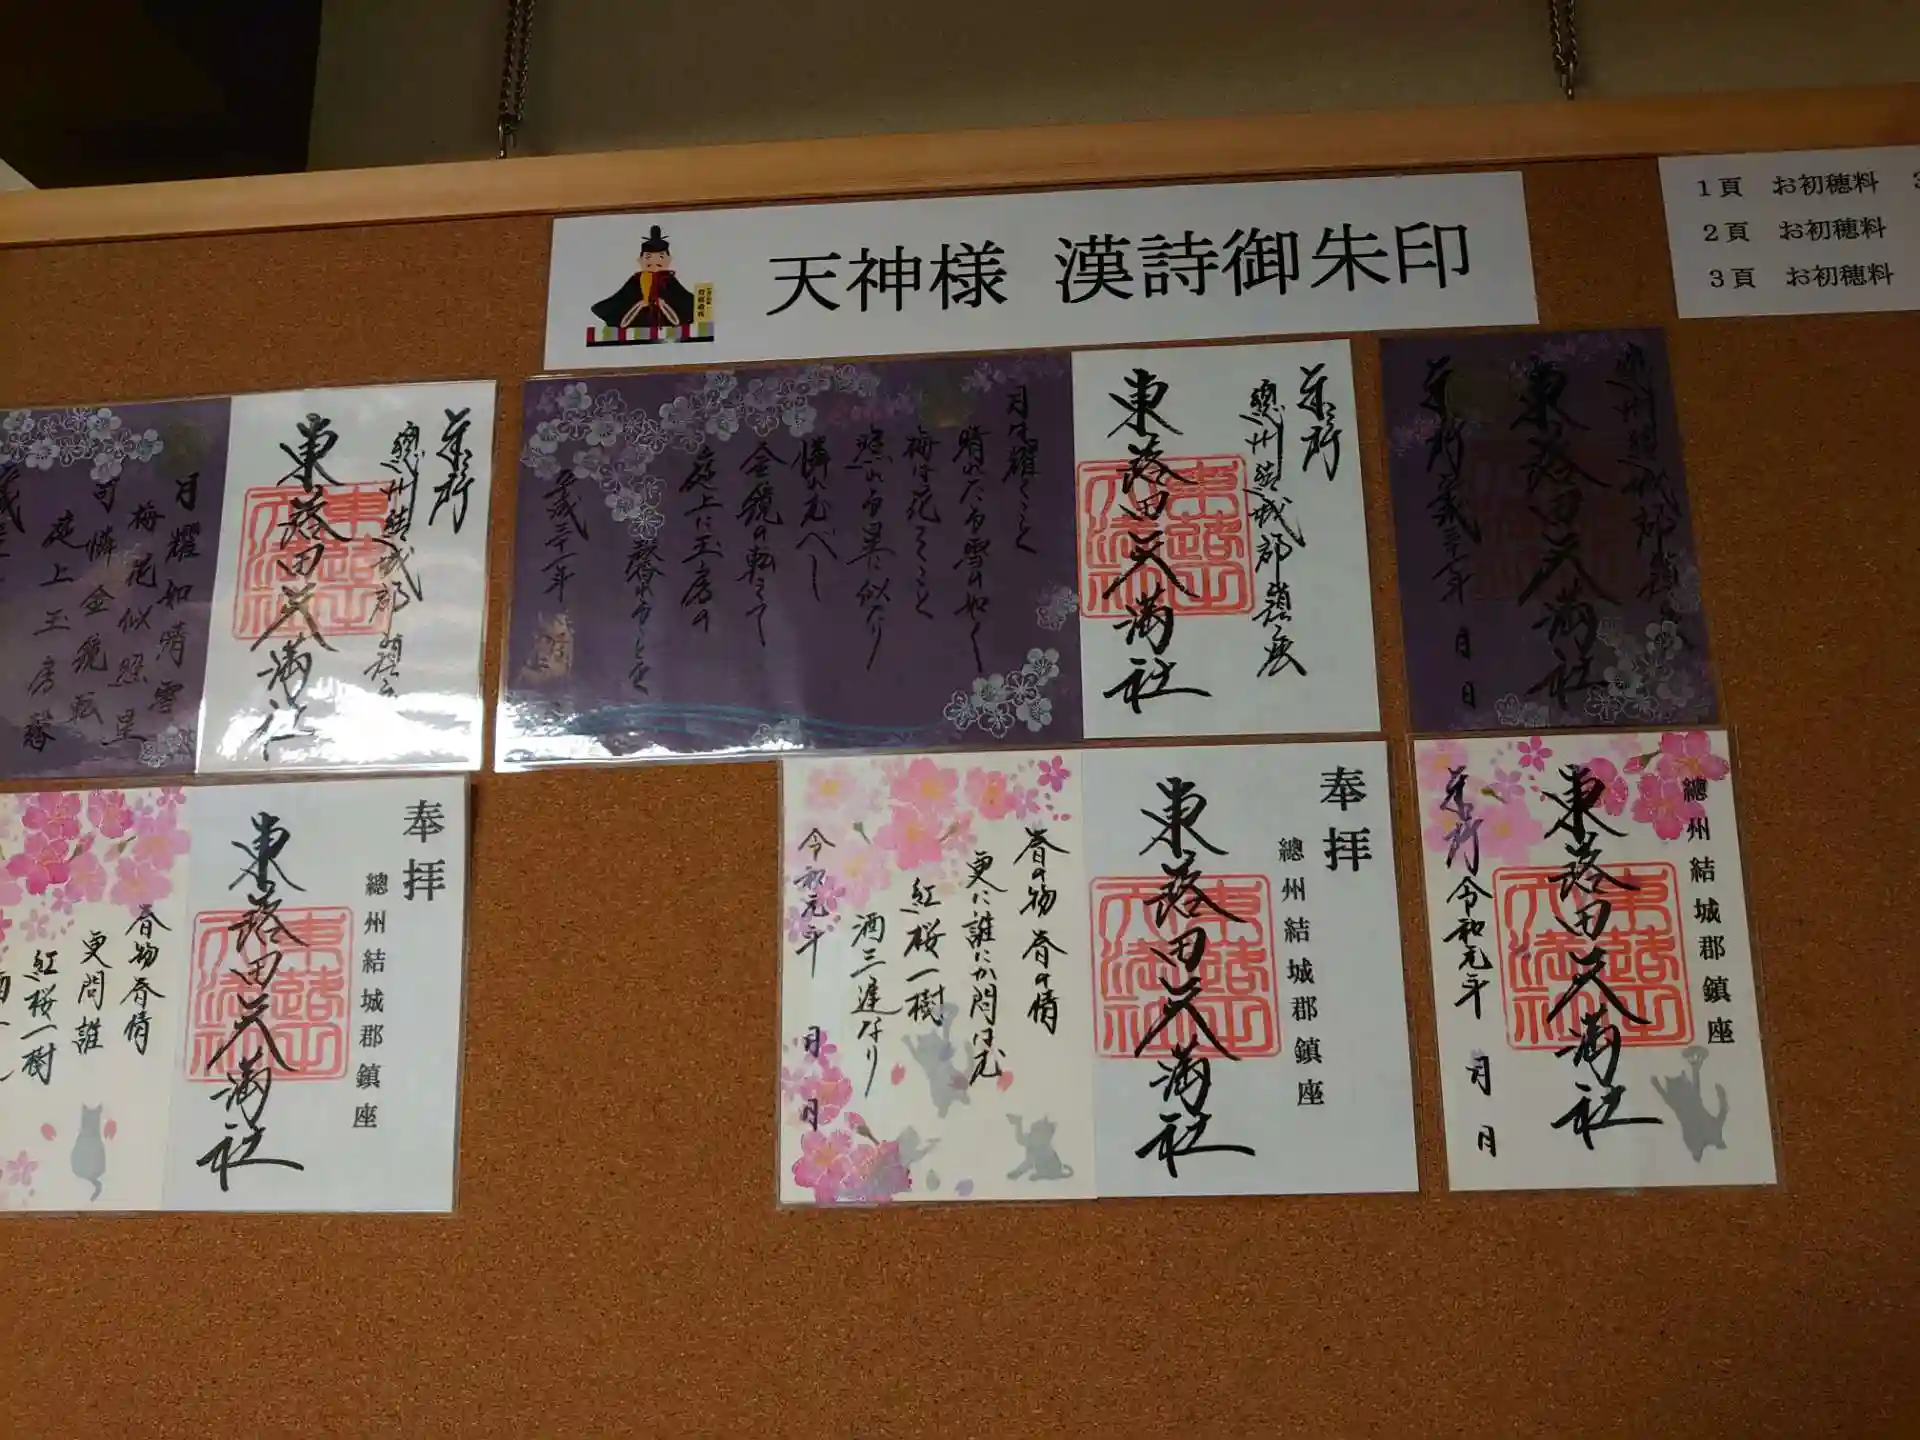 天神様 漢詩御朱印
1頁 お初穂料 3
2頁 お初穂料
3頁 お初穂料
東蕗田天満社
月耀如晴雪
梅花似照星
可憐金鏡転
庭上玉房馨
總州結城郡鎮座
東蕗田天満社
月の耀くこと
晴れたる雪の如く
梅は花さくこと
照れる星に似たり
憐れむべし
金鏡の転きて
庭上に玉房の
馨れることを
平成三十一年
總州結城郡鎮座
東蕗田天満社
平成三十一年 月 日
奉拝
總州結城郡鎮座
東蕗田天満社
春物春情
更問誰
紅桜一樹
奉拝
總州結城郡鎮座
東蕗田天満社
春の物 春の情
更に誰にか問はむ
紅桜一樹
酒三遅なり
令和元年 月 日
總州結城郡鎮座
東蕗田天満社
令和元年 月 日